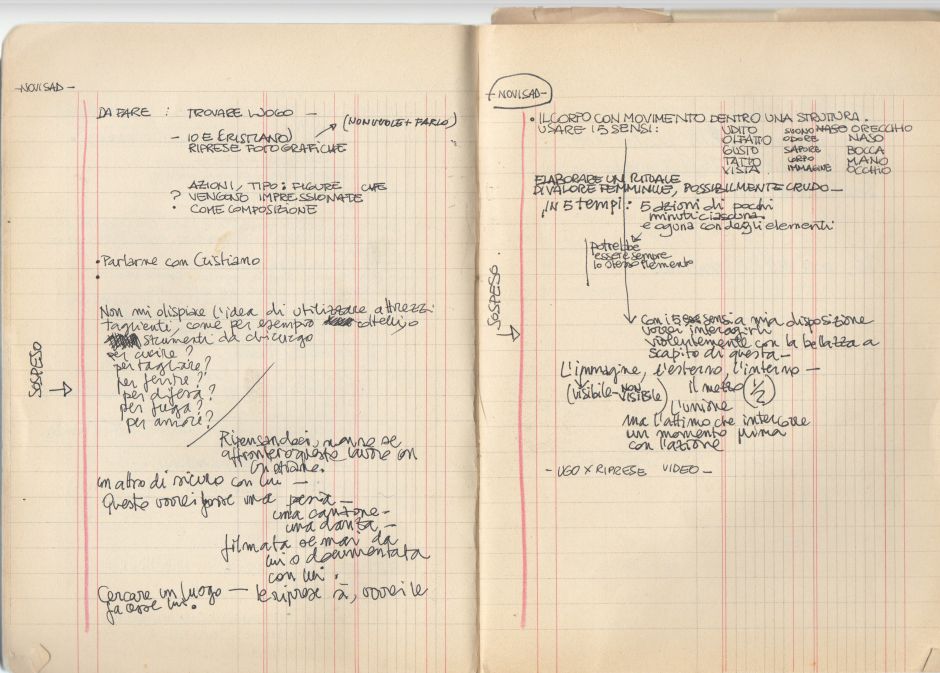 -NOVISAD-
DA FARE : TROVARE LUOGO -
(NON VUOLE + FARLO)
- IO E CRISTIANO)
RIPRESE FOTOGRAFICHE
AZIONI, TIPO: FIGURE CHE
? VENGONO IMPRESSIONATE
• COME COMPOSIZIONE
• Parlarne con Cristiano
•
Non mi dispiace l'idea di utilizzare attrezzi
taglienti, come per esempio coltello
strumenti da chirurgo
per cucire?
per tagliare?
per ferire?
per difesa?
per fuga?
per amore?
SOSPESO
Ripensandoci, non so se
affronterò questo lavoro con
Cristiano.
un altro di sicuro con lui -
Questo vorrei fosse una poesia -
una canzone -
una danza -
filmata se mai da
lui o documentata
con lui.
Cercare un luogo - le riprese sì, vorrei le
facesse lui.
-NOVISAD-
• IL CORPO CON MOVIMENTO DENTRO UNA STRUTURA.
USARE I 5 SENSI:
UDITO SUONO NASO ORECCHIO
OLFATTO ODORE NASO
GUSTO SAPORE BOCCA
TATTO CORPO MANO
VISTA. IMMAGINE OCCHIO
ELABORARE UN RITUALE
DI VALORE FEMMINILE, POSSIBILMENTE CRUDO -
IN 5 tempi: 5 azioni di pochi
minuti ciascuna.
e oguna con degli elementi
potrebbe
essere sempre
lo stesso elemento
SOSPESO
con i 5 sensi a mia disposizione
vorrei interagirli
violentemente con la bellezza a
scapito di questa -
L'immagine, l'esterno, l'interno -
(visibile - NON VISIBILE)
il mezzo 1/2
L'unione
ma l'attimo che intercorre
un momento prima
con l'azione
- UGO X RIPRESE VIDEO -